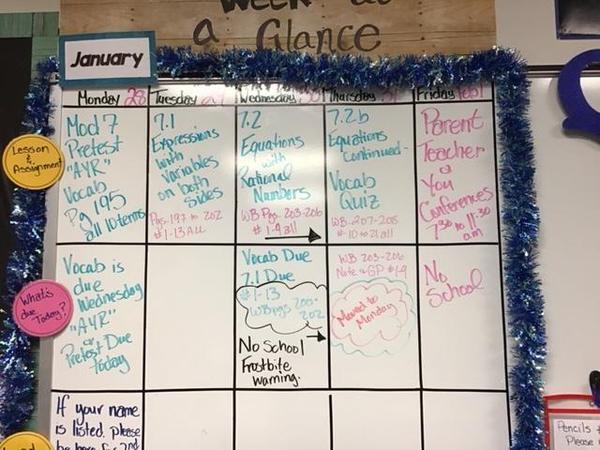 Week at
a Glance
January
Monday 28
Tuesday 29
Wednesday 30
Thursday 31
Friday Feb 1
Lesson
&
Assignment
Mod 7
Pretest
"AYR"
Vocab
Pg 195
all 10 terms
7.1
Expressions
with
Variables
on both
sides
Pgs. 197 to 202
#1-13 All
7.2
Equations
with
Rational
Numbers
WB Pgs. 203-206
# 1-9 all
7.2b
Equations
continued-
Vocab
Quiz
WB-207-208
#10 to 21 all
Parent
Teacher
&
You
Conferences
7:30 to 11:30
am
What's
due Today?
Vocab is
due
Wednesday
"AYR"
or
Pretest Due
Today
Vocab Due
7.1 Due
#1-13
WB pgs 200-
202
No School
Frostbite
Warning.
WB 203-206
Moved to
Monday
No
School
If your name
is listed, please
be here for 2nd
Pencils
Please